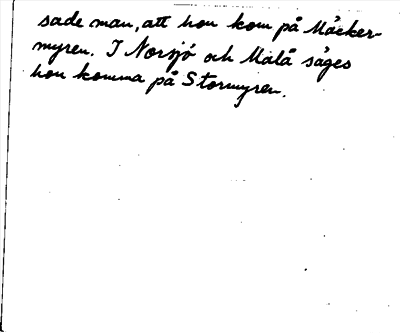 sade man, att hon kom på Måcker-
myren. I Norsjö och Malå säges
hon komma på Stormyren.